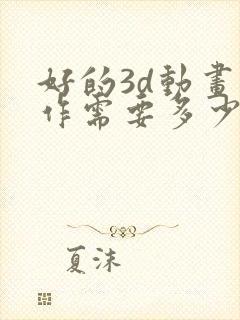 好的3d動畫
作需要多少
夏沫